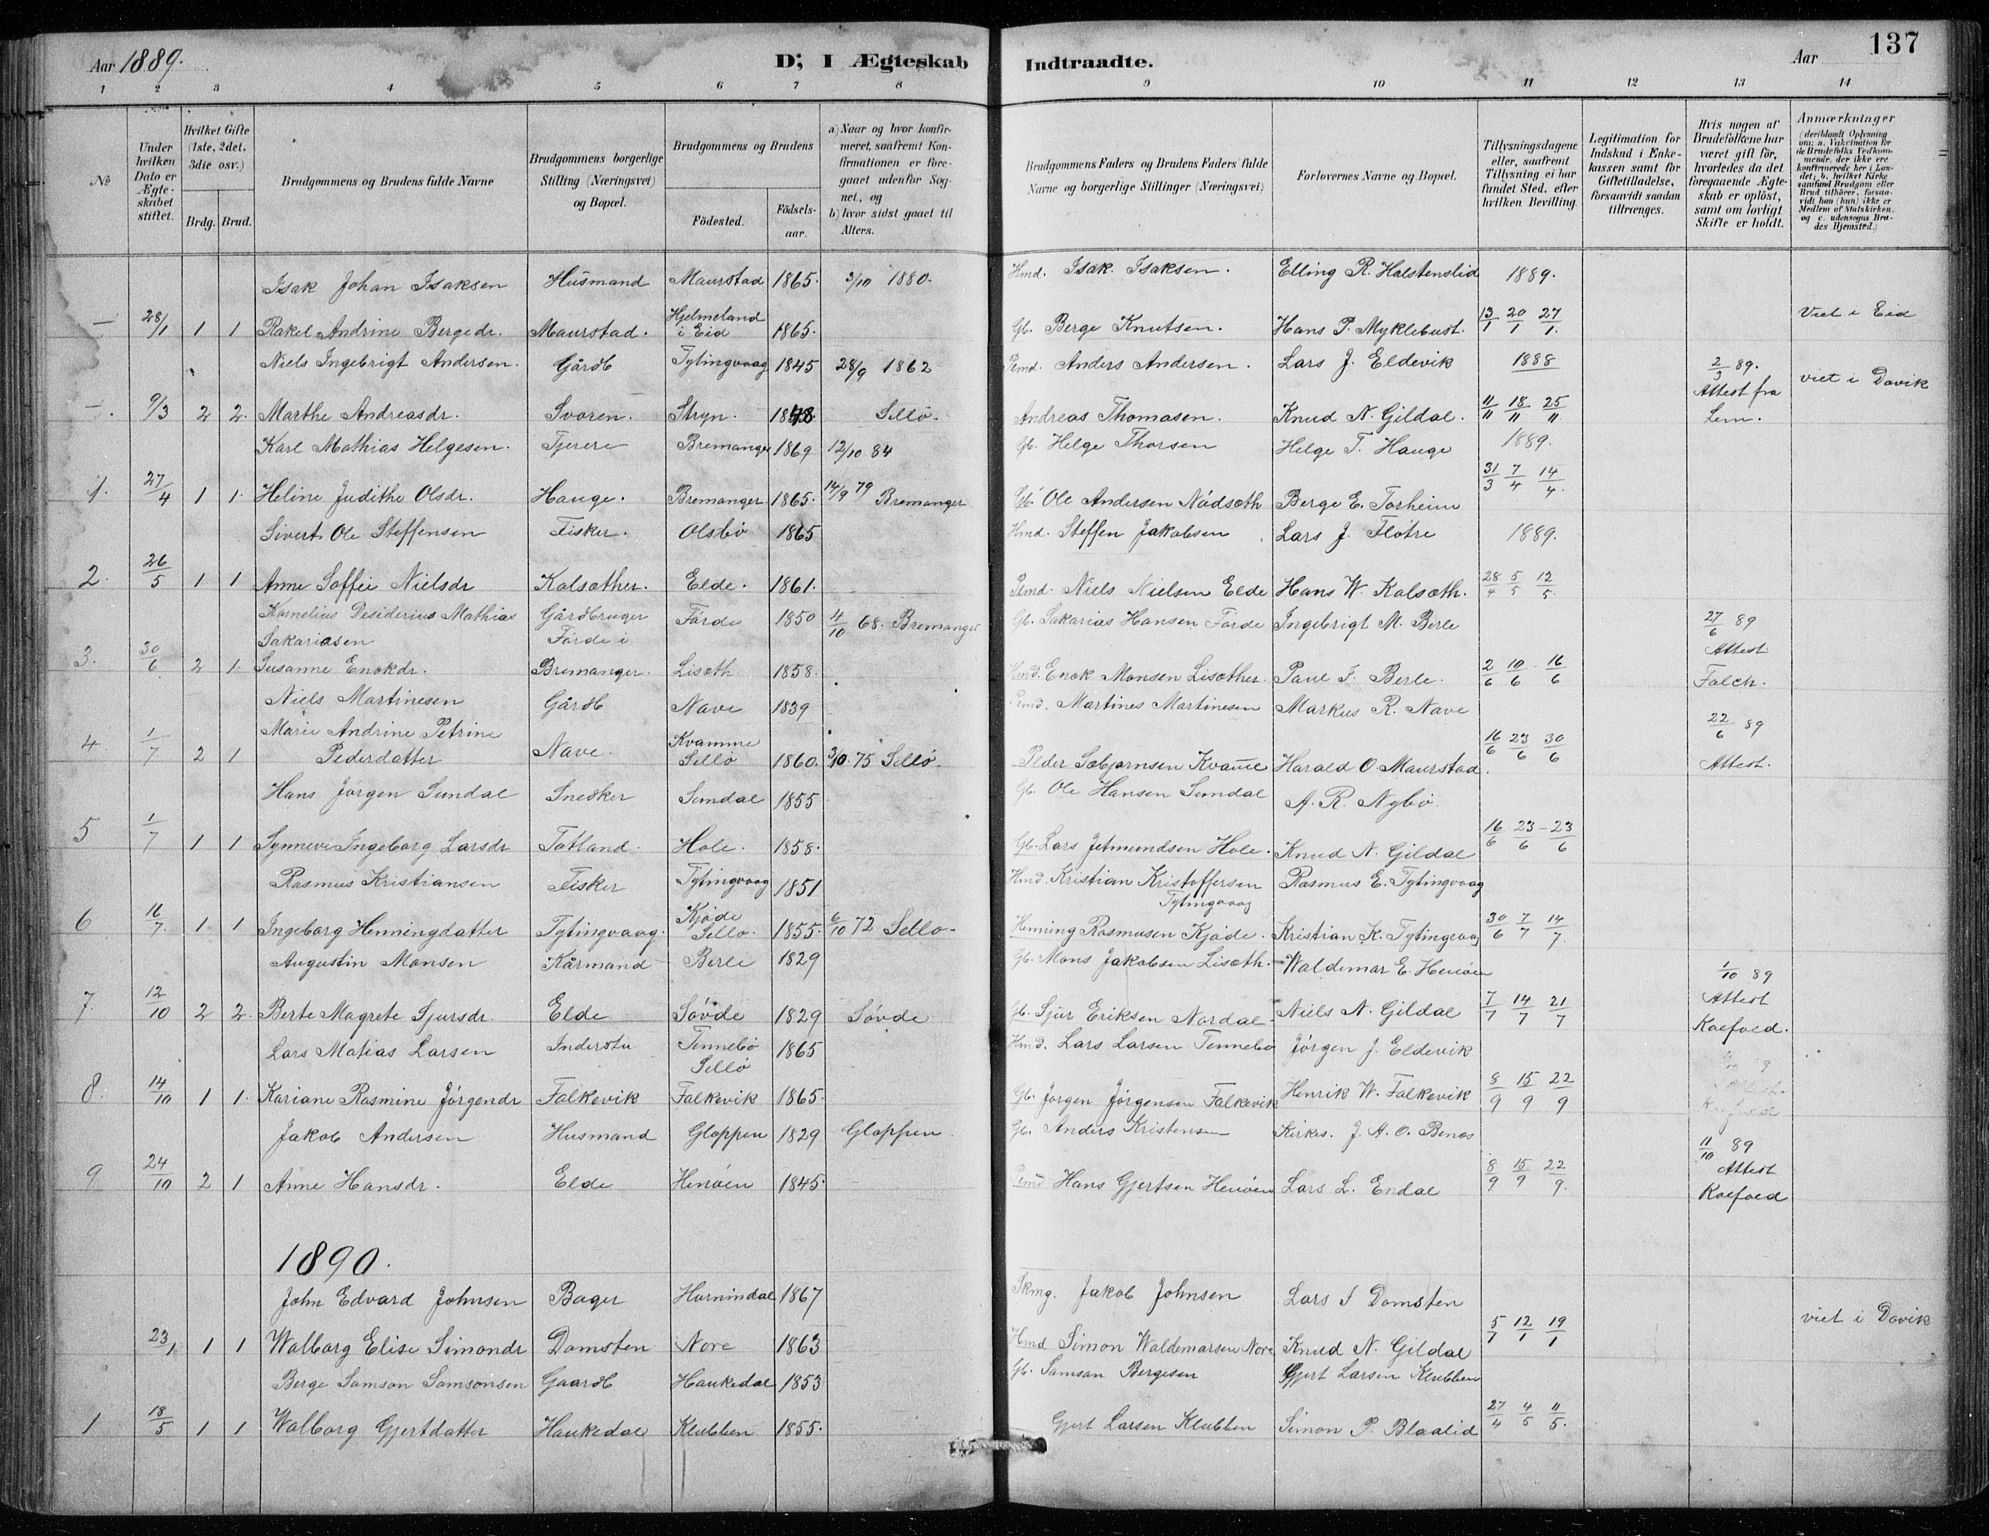 137
Aar 1889.
D; I Ægteskab Indtraadte.
Aar
1 2 3 4 5 6 7 8 9 10 11 12 13 14
No
Under hvilken Dato er Ægteskabet stiftet.
Hvilket Gifte (1ste, 2det, 3die osv.)
Brdg. Brud.
Brudgommens og Brudens fulde Navne
Brudgommens borgerlige Stilling (Næringsvei) og Bopæl.
Brudgommens og Brudens
Födested.
Födselsaar.
a) Naar og hvor konfirmeret, saafremt Konfirmationen er foregaaet udenfor Sognet, og
b) hvor sidst gaaet til Alters.
Brudgommens Faders og Brudens Faders fulde Navne og borgerlige Stillinger (Næringsvei)
Forlovernes Navne og Bopæl.
Tillysningsdagene eller, saafremt Tillysning ei har fundet Sted, efter hvilken Bevilling.
Legitimation for Indskud i Enkekassen samt for Giftetilladelse, forsaavidt saadan tiltrænges.
Hvis nogen af Brudefolkene har været gift för, hvorledes da det foregaaende Ægteskab er oplöst, samt om lovligt Skifte er holdt.
Anmærkninger (deriblandt Oplysning om: a. Vakcination for de Brudefolks Vedkommende, der ikke ere konfirmerede her i Landet; b. hvilket Kirkesamfund Brudgom eller Brud tilhörer, forsaavidt han (hun) ikke er Medlem af Statskirken, og c. udensogns Brudes Hjemsted.)
Isak Johan Isaksen Husmand Maurstad 1865. 3/10 1880. Hmd. Isak Isaksen. Elling R. Halstenslid 1889.
— 28/1 1 1 Rakel Andrine Bergedr. Maurstad. Hjelmeland i Eid 1865. Gb. Berge Knutsen. Hans P. Myklebust. 13/1 20/1 27/1. Viet i Eid
Niels Ingebrigt Andersen. Gårdb Tytingvaag 1845 28/9 1862 Pmd. Anders Andersen. Lars J. Eldevik 1888 2/3 89.
—. 9/3 2 2. Marthe Andreasdr. Svoren. Stryn. 1848 Sellö. Andreas Thomasen. Knud N. Gildal. 11/11 18/11 25/11 Attest fra Lem. viet i Davik
Karl Mathias Helgesen. Tjerere Bremanger 1869 12/10 84 Gb. Helge Thorsen Helge T. Hauge 1889.
1. 27/4 1 1. Heline Judithe Olsdr. Hauge. Bremanger 1865. 14/9 79 Bremanger Gb. Ole Andersen Nödsæth Berge E. Torheim 31/3 7/4 14/4.
Sivert Ole Steffensen Fisker. Olsbö 1865 Hmd. Steffen Jakobsen Lars J. Flötre 1889.
2. 26/5 1 1 Anne Soffie Nielsdr Kolsæther. Elde. 1861. Pmd. Niels Nielsen Elde Hans W. Kolsæth. 28/4 5/5 12/5.
Kornelius Desiderius Mathias Sakariasen Gårdbruger Förde i Förde 1850 4/10 68. Bremanger Gb. Sakarias Hansen Förde Ingebrigt M. Berle 27/6 89
3. 30/6 2 1. Susanne Enokdr. Bremanger. Lisæth 1858. Hmd. Enok Monsen Lisæther. Paul I. Berle. 2/6 10/6 16/6 Attest Falch.
Niels Martinesen Gårdb Nave 1839 Pmd. Martines Martinesen Markus R. Nave 22/6 89
4. 1/7 2 1 Marie Andrine Petrine Pedersdatter Nave. Kvamme Sellö 1860. 3/10. 75 Sellö. Peder Sæbjornsen Kvame Harald O. Maurstad. 16/6 23/6 30/6 Attest.
Hans Jørgen Sundal Snedker Sundal 1855 Gb. Ole Hansen Sundal A. R. Nybö.
5 1/7 1 1 Synneve Ingeborg Larsdr Totland. Hole. 1858. Gb. Lars Jetmundsen Hole. Knud N. Gildal 16/6 23/6 – 23/6
Rasmus Kristiansen Fisker Tytingvaag 1851 Hmd. Kristian Kristoffersen Tytingvaag Rasmus E. Tytingvaag
6 16/7. 1 1 Ingeborg Henningdatter Tytingvaag. Kjöde Sellö. 1855. 6/10 72 Sellö. Henning Rasmusen Kjöde. Kristian K. Tytingvaag 30/6 7/7 14/7.
Augustin Monsen Kårmand Berle 1829 Gb. Mons Jakobsen Lisæth. Waldemar E. Henöen 1/10 89
7. 12/10 2 2. Berte Magrete Sjursdr. Elde Sövde 1829 Sövde Gb. Sjur Eriksen Nordal. Niels N. Gildal 7/7 14/7 21/7 Attest Koefoed.
Lars Matias Larsen Inderstu Tennebö Sellö 1865 Hmd. Lars Larsen Tennebö Jörgen J. Eldevik
8. 14/10 1 1. Kariane Rasmine Jörgendr Falkevik Falkevik 1865. Gb. Jörgen Jörgensen Falkevik Henrik W. Falkevik 8/9 15/9 22/9
Jakob Andersen Husmand Gloppen 1829 Gloppen. Gb. Anders Kristensen Kirkes. J. A. O. Benæs 11/10 89
9 24/10 2 1 Anne Hansdr. Elde Henöen 1845. Pmd Hans Gjertsen Henöen Lars L. Endal 8/9 15/9 22/9. Attest Koefoed
1890.
John Edvard Johnsen Bager Hornindal 1867 Skmg. Jakob Johnsen Lars I Domsten
23/1 1 1 Walborg Elise Simondr Domsten Nore 1863 Hmd Simon Waldemarsen Nore Knud N. Gildal 5/1 12/1 19/1 viet i Davik
Berge Samson Samsonsen Gaardb Haukedal 1853 Gb. Samson Bergesen Gjert Larsen Klubben
1 18/5 1 1 Walborg Gjertdatter Haukedal Klubben 1855. Gjert Larsen Klubben Simon P. Blaalid 27/4 4/5 11/5.